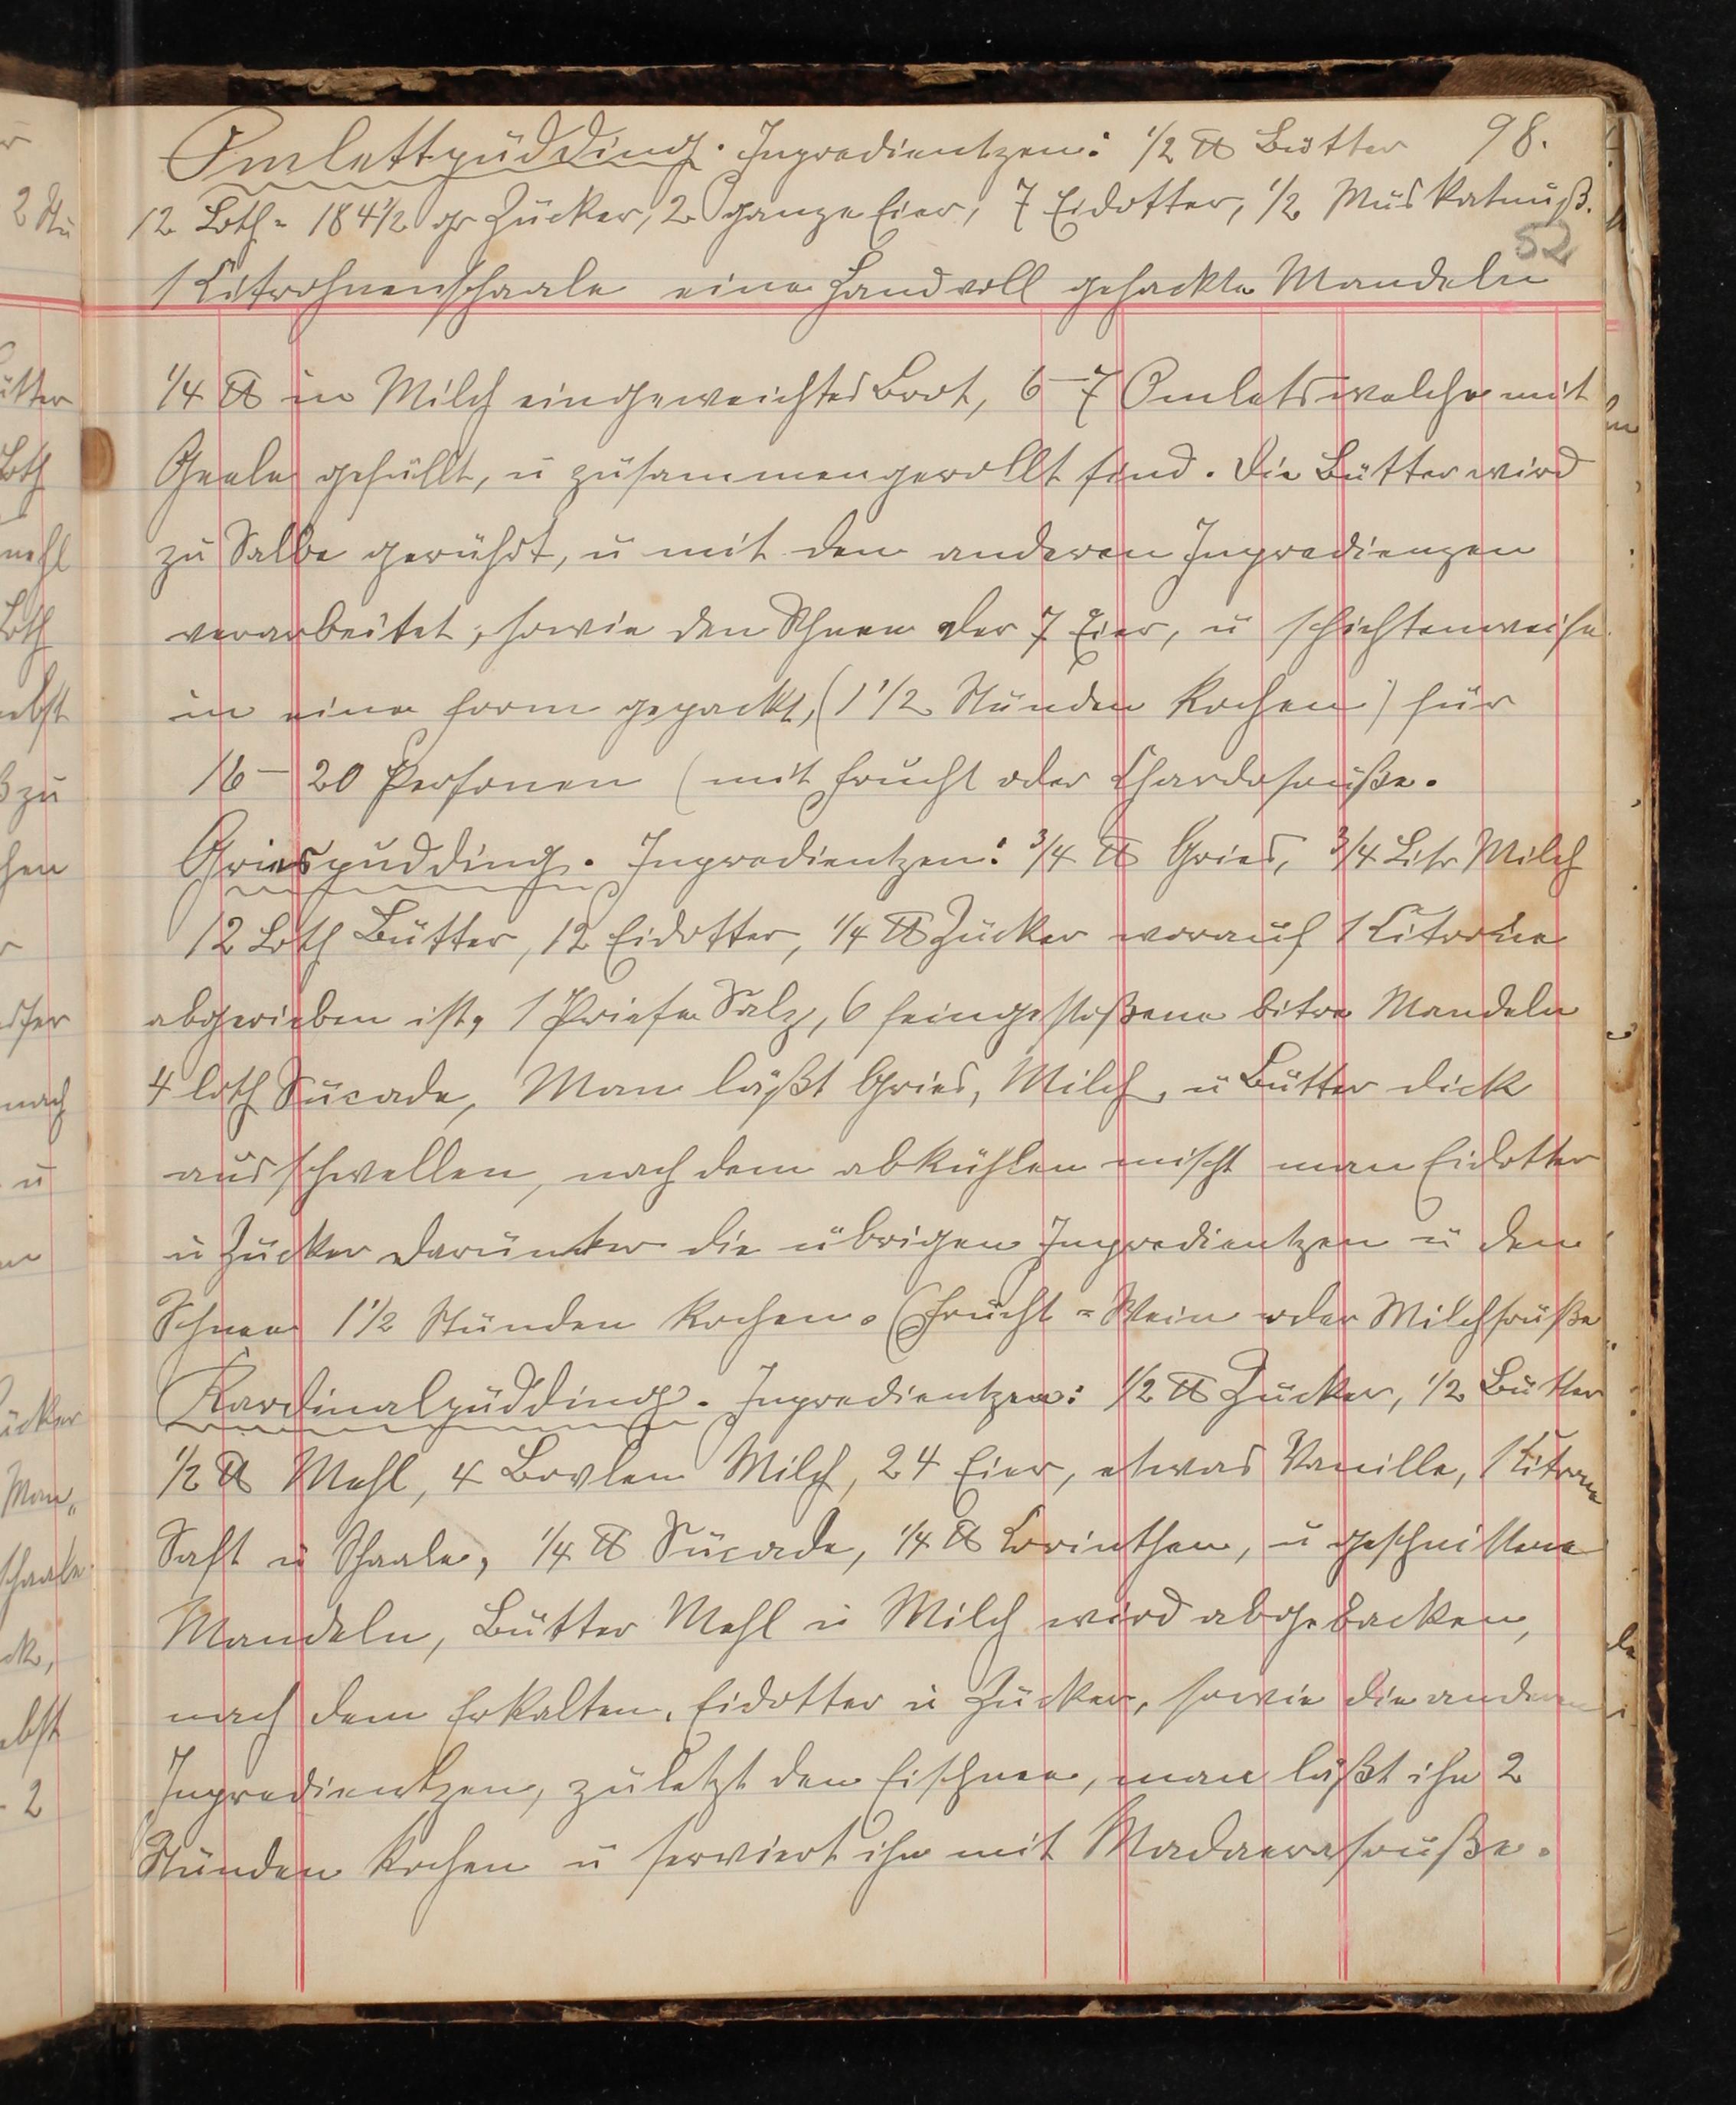 Omlettpudding. Ingredientzen: 1/2 ℔ Butter 98.
12 Loth = 184 1/2 gr Zucker, 2 ganze Eier, 7 Eidotter, 1/2 Muskatnuß.
52
1 Citrohnenschaale eine Handvoll gehackte Mandeln
1/4 ℔ in Milch eingeweichtes Brot, 6–7 Omlets welche mit
Geele gefüllt, u zusammengerollt sind. Die Butter wird
zu Salbe gerührt, u mit den anderen Ingredienzen
verarbeitet, sowie den Schnee der 7 Eier, u schichtenweise
in eine Form gepackt, (1 1/2 Stunden Kochen) für
16–20 Personen (mit Frucht oder Chardosouße.
Griespudding. Ingredientzen: 3/4 ℔ Gries, 3/4 Litr Milch
12 Loth Butter, 12 Eidotter, 1/4 ℔ Zucker worauf 1 Citrone
abgerieben ist, 1 Priese Salz, 6 feingestoßene bitre Mandeln
4 loth Sucade, Man läßt Gries, Milch, u Butter dick
ausschwellen, nach dem abkühlen mischt man Eidotter
u Zucker darunter die übrigen Ingredientzen u den
Schnee 1 1/2 Stunden Kochen. (Frucht = Wein oder Milchsouße
Kardinalpudding. Ingredientzen: 1/2 ℔ Zucker, 1/2 Butter
1/2 ℔ Mehl, 4 Milch, 24 Eier, etwas Vanille, 1 Citrone
Saft u Schaale, 1/4 ℔ Sucade, 1/4 ℔ Corinthen, u geschnittene
Mandeln, Butter Mehl u Milch wird abgebacken,
nach dem Erkalten, Eidotter u Zucker, sowie die anderen
Ingredientzen, zuletzt den Eischnee, man läßt ihn 2
Stunden Kochen u serviert ihn mit Madaerasouße.